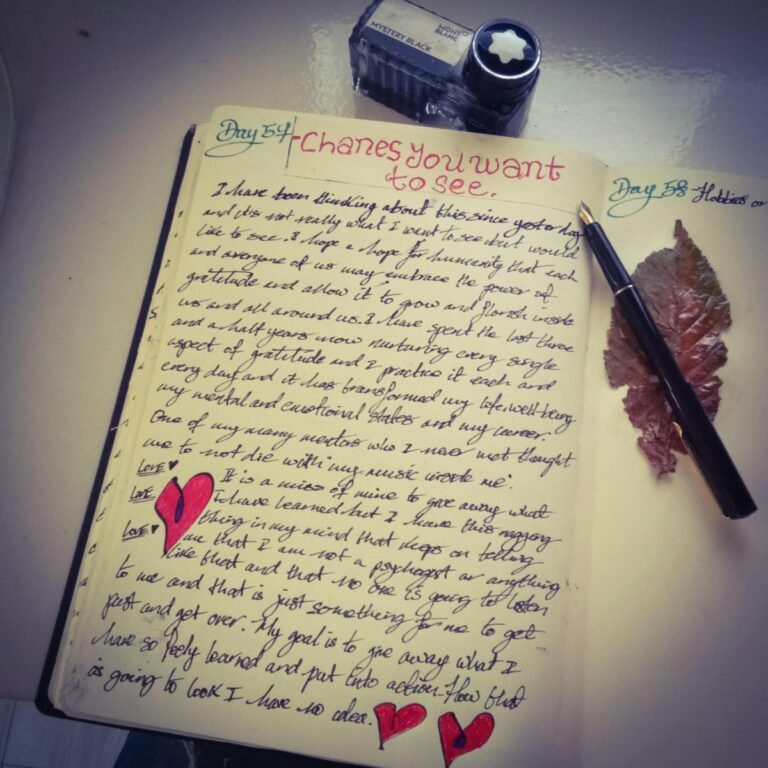 MONT
BLANC
MYSTERY BLACK
Day 54
-Chanes you want
to see.
I have been thinking about this since yesterday
and it's not really what I want to see but would
like to see. I hope a hope for humenity that each
and everyone of us may embrace the power of
gratitude and allow it to grow and florish inside
us and all around us. I have spent the last three
and a half years now nurturing every single
aspect of gratitude and I practice it each and
every day and it has transformed my life, well-being
my mental and emotional states and my career.
One of my many mentors who I never met thought
me to not die with my music inside me.
It is a miss of mine to give away what
I have learned but I have this nagging
thing in my mind that keeps on telling
me that I am not a psychogist or anything
like that and that no one is going to listen
to me and that is just something for me to get
past and get over. My goal is to give away what I
have so freely learned and put into action. How that
is going to look I have no idea.
LOVE
LOVE
LOVE
Day 58 - Hobbies or